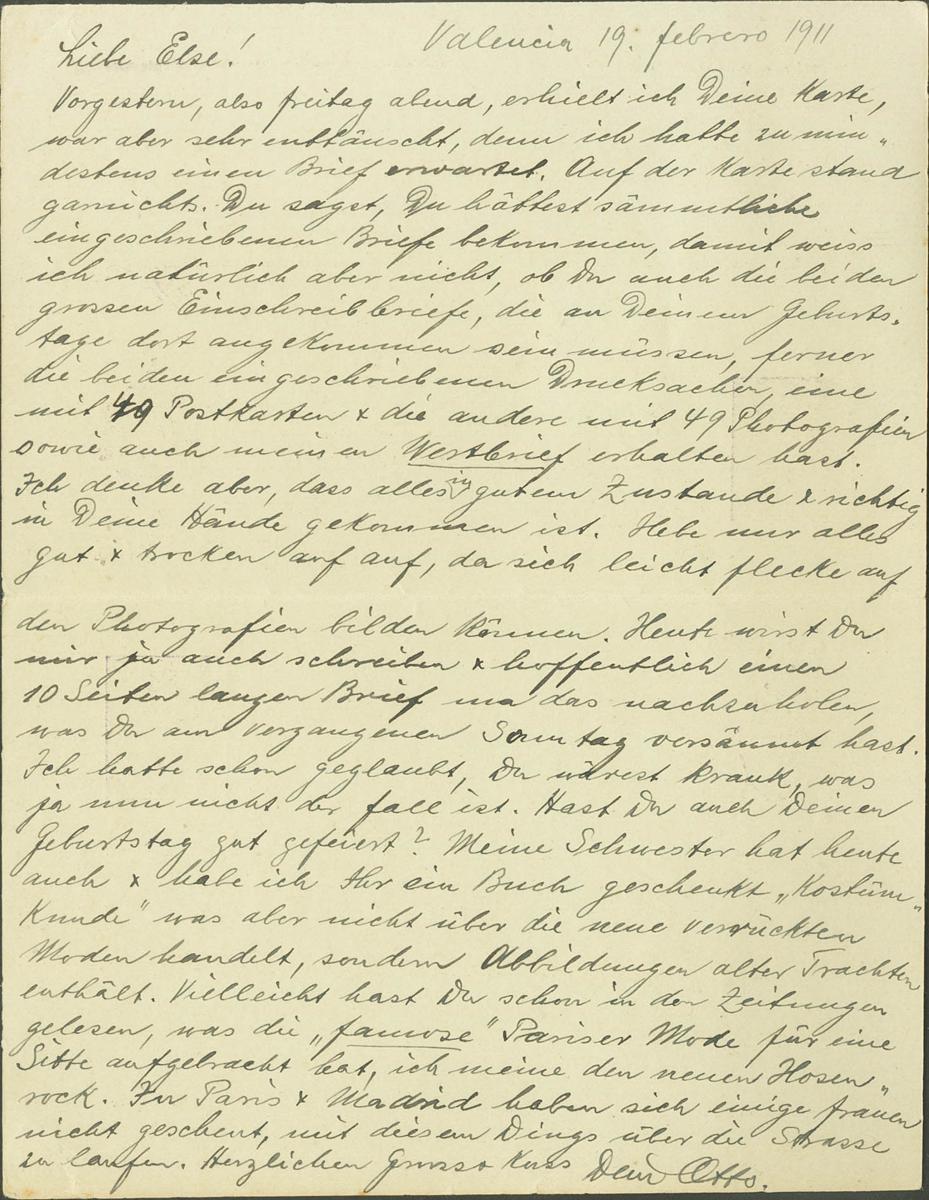 Valencia 19. febrero 1911
Liebe Else!
Vorgestern, also freitag abend, erhielt ich Deine Karte,
war aber sehr enttäuscht, denn ich hatte zu min„
destens einen Brief erwartet. Auf der Karte stand
garnichts. Du sagst, Du hättest sämmtliche
eingeschriebenen Briefe bekommen, damit weiss
ich natürlich aber nicht, ob Du auch die beiden
grossen Einschreibbriefe, die an Deinem Geburts„
tage dort angekommen sein müssen, ferner
die beiden eingeschriebenen Drucksachen, eine
mit 49 Postkarten & die andere mit 49 Photografien
sowie auch meinen Wertbrief erhalten hast.
Ich denke aber, dass alles in gutem Zustande & richtig
in Deine Hände gekommen ist. Hebe nur alles
gut & trocken auf auf, da sich leicht flecke auf
den Photografien bilden können. Heute wirst Du
mir ja auch schreiben & hoffentlich einen
10 Seiten langen Brief um das nachzuholen,
was Du am vergangenen Sonntag versäumt hast.
Ich hatte schon geglaubt, Du wärest krank, was
ja nun nicht der fall ist. Hast Du auch Deinen
Geburtstag gut gefeiert? Meine Schwester hat heute
auch & habe ich Ihr ein Buch geschenkt „Kostüm„
Kunde" was aber nicht über die neue verrückten
Moden handelt, sondern Abbildungen alter Trachten
enthält. Vielleicht hast Du schon in den Zeitungen
gelesen, was die „famose" Pariser Mode für eine
Sitte aufgebracht hat, ich meine den neuen Hosen„
rock. In Paris & Madrid haben sich einige frauen
nicht gescheut, mit diesem Dings über die Strasse
zu laufen. Herzlichen Gruss & Kuss Dein Otto.